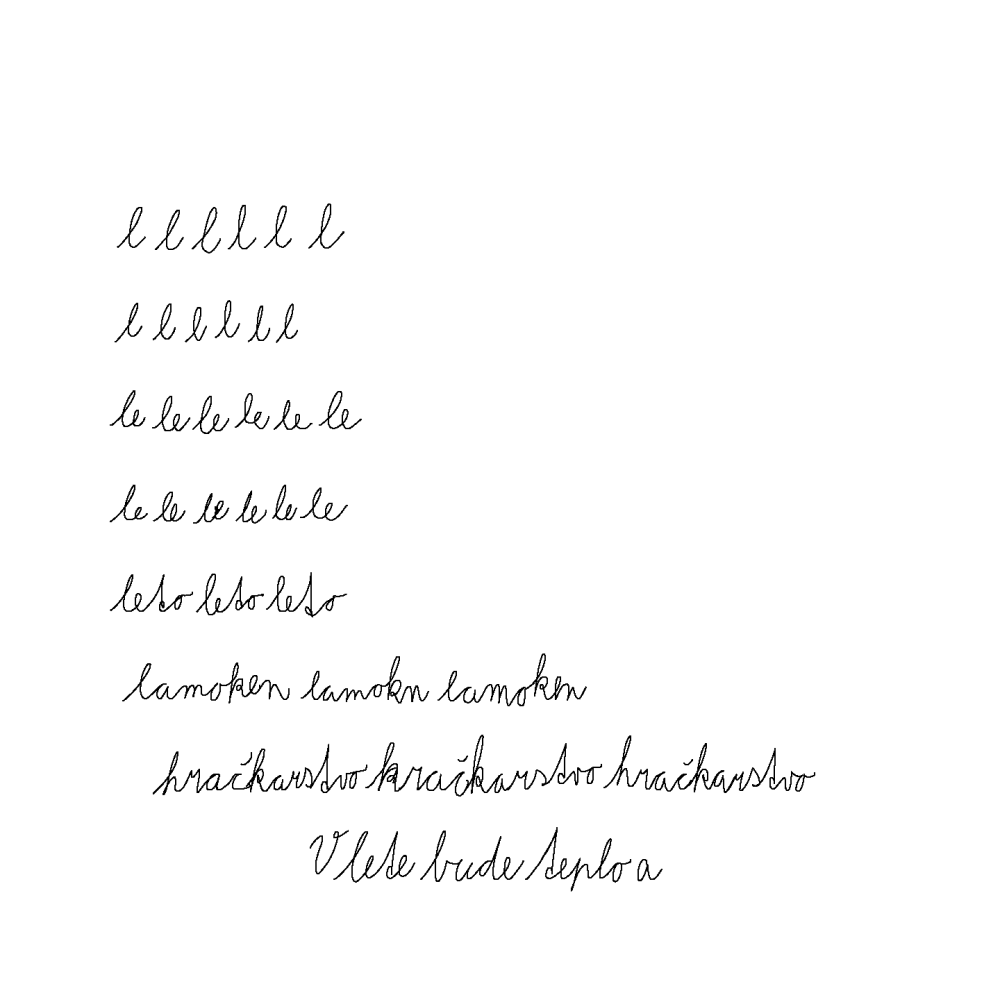 l l l l l l
l l l l l l
le le le le le le
le le le le le le
leto leto leto
lamoken lamokn lamoken
hračkarstvo kračkarstvo hračkarstvo
V lete bude teplo a